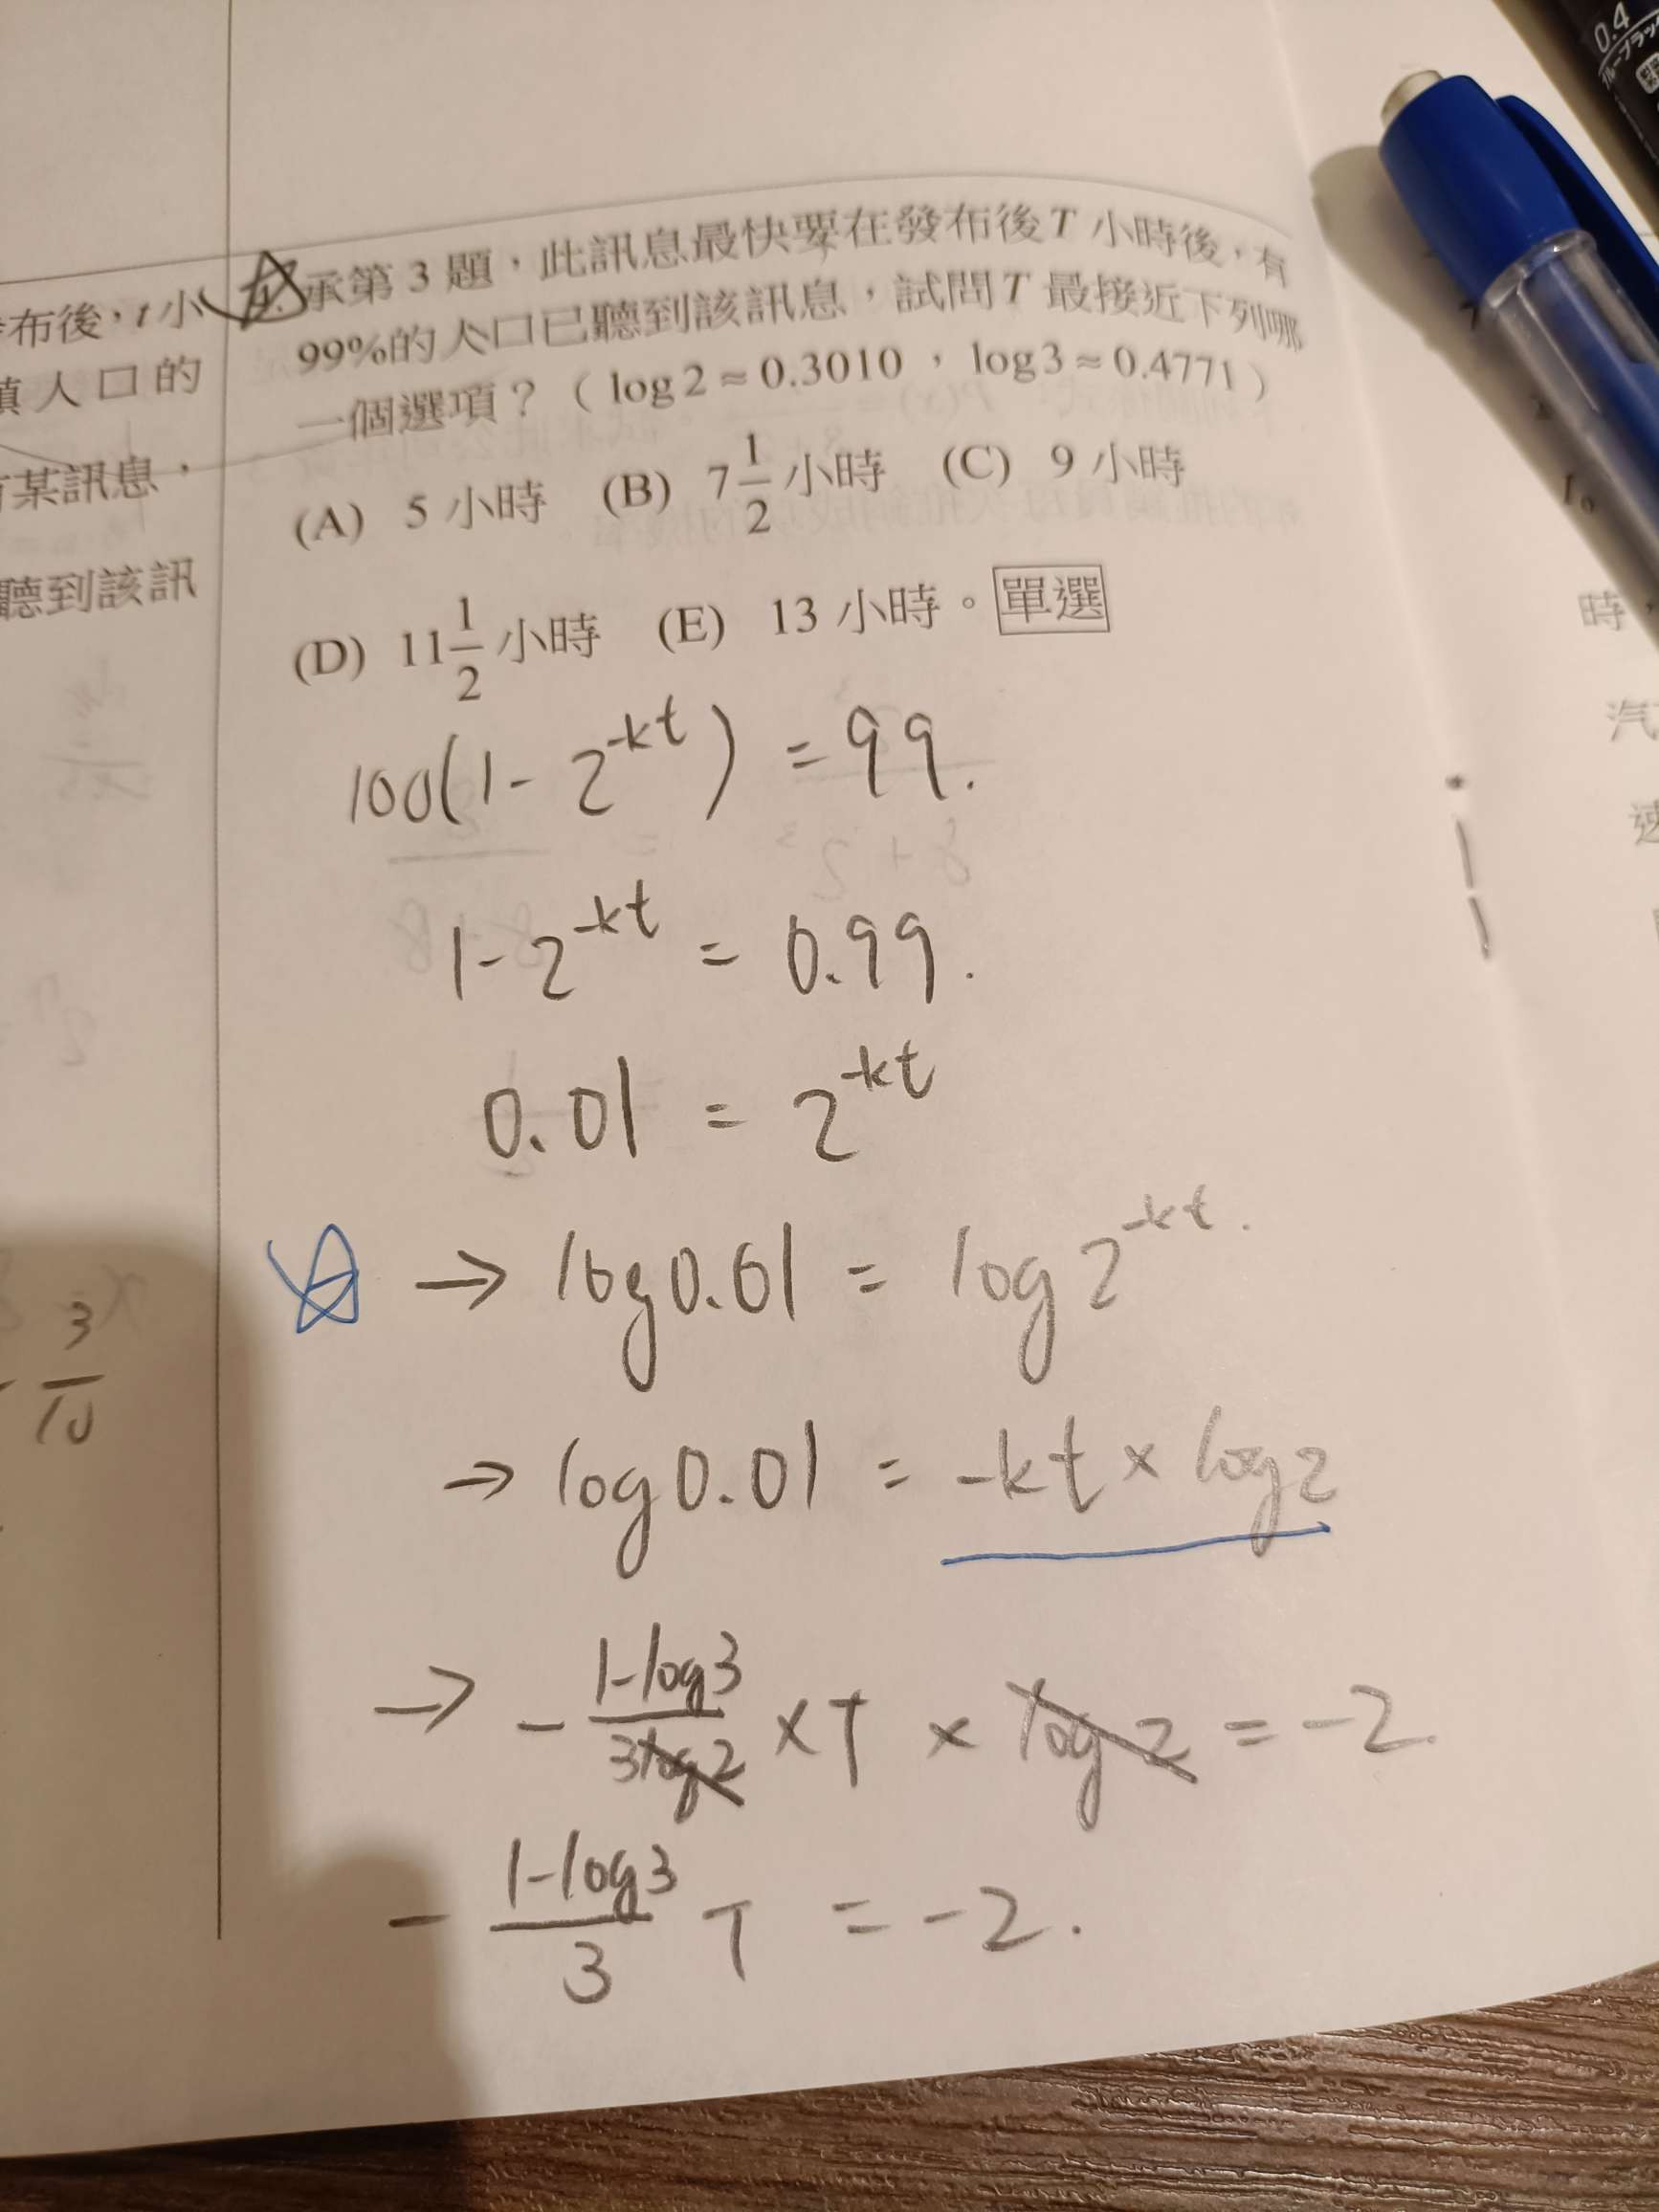 0.4
布後，t 小
鎮人口的
某訊息，
聽到該訊
3
10
4. 承第 3 題，此訊息最快要在發布後 T 小時後，有
99%的人口已聽到該訊息，試問 T 最接近下列哪
一個選項？（log 2 ≈ 0.3010，log 3 ≈ 0.4771）
(A) 5 小時 (B) 7 1/2 小時 (C) 9 小時
(D) 11 1/2 小時 (E) 13 小時。單選
100(1-2^-kt) = 99.
1-2^-kt = 0.99.
0.01 = 2^-kt
→ log0.01 = log2^-kt.
→ log0.01 = -kt × log2
→ - (1-log3)/(3log2) × T × log2 = -2.
- (1-log3)/3 T = -2.
時，
汽
速